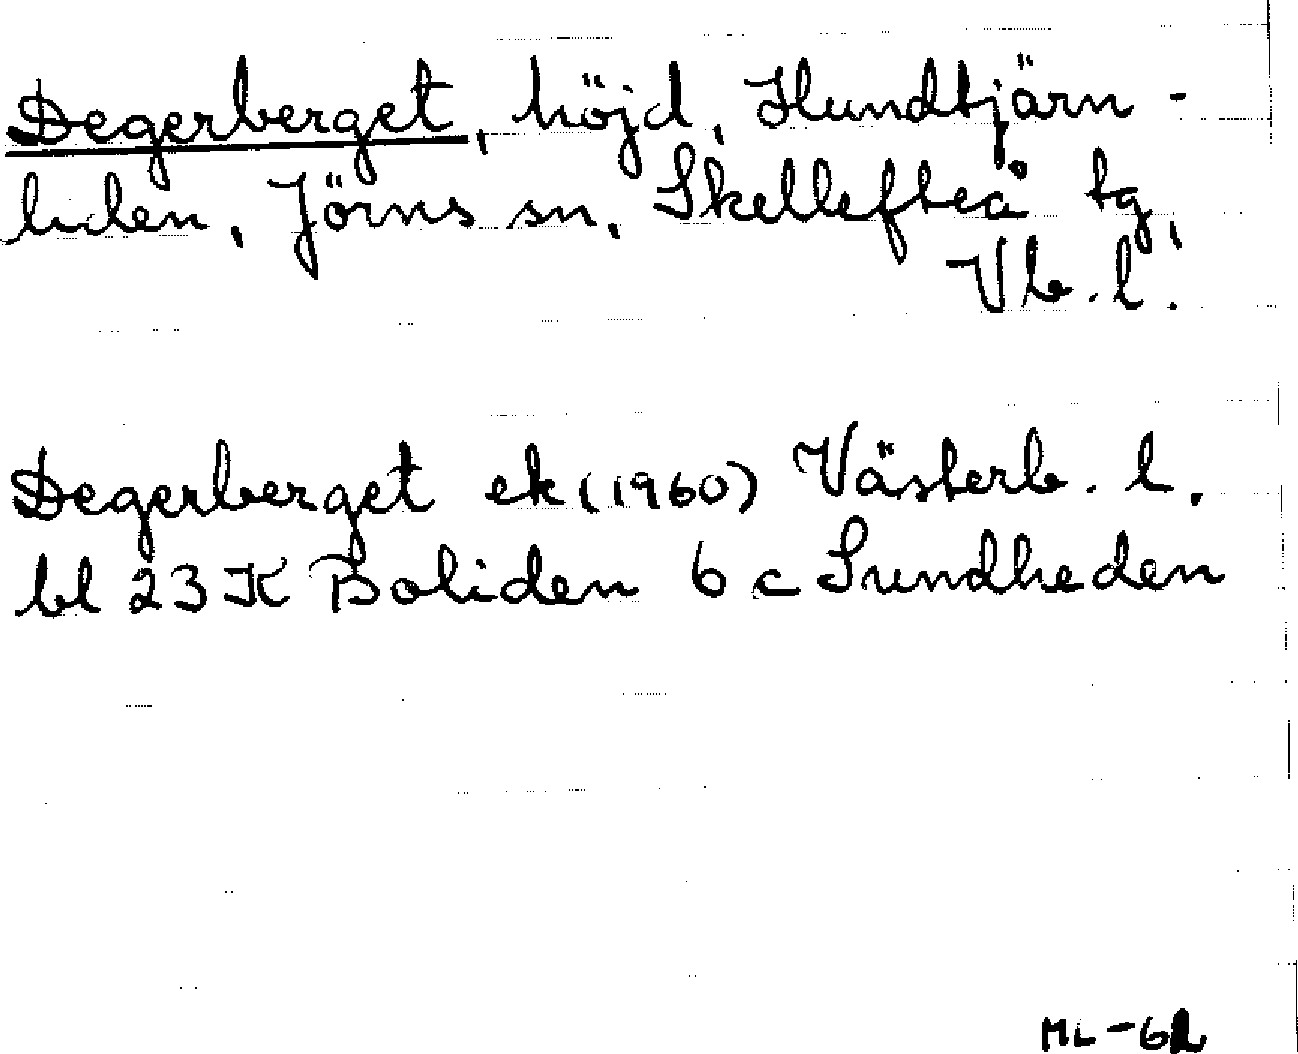 Degerberget, höjd, Hundtjärn-
liden, Jörns sn, Skellefteå tg,
Vb. l.
Degerberget ek (1960) Västerb. l.
bl 23 K Boliden 6 c Sundheden
ML-62